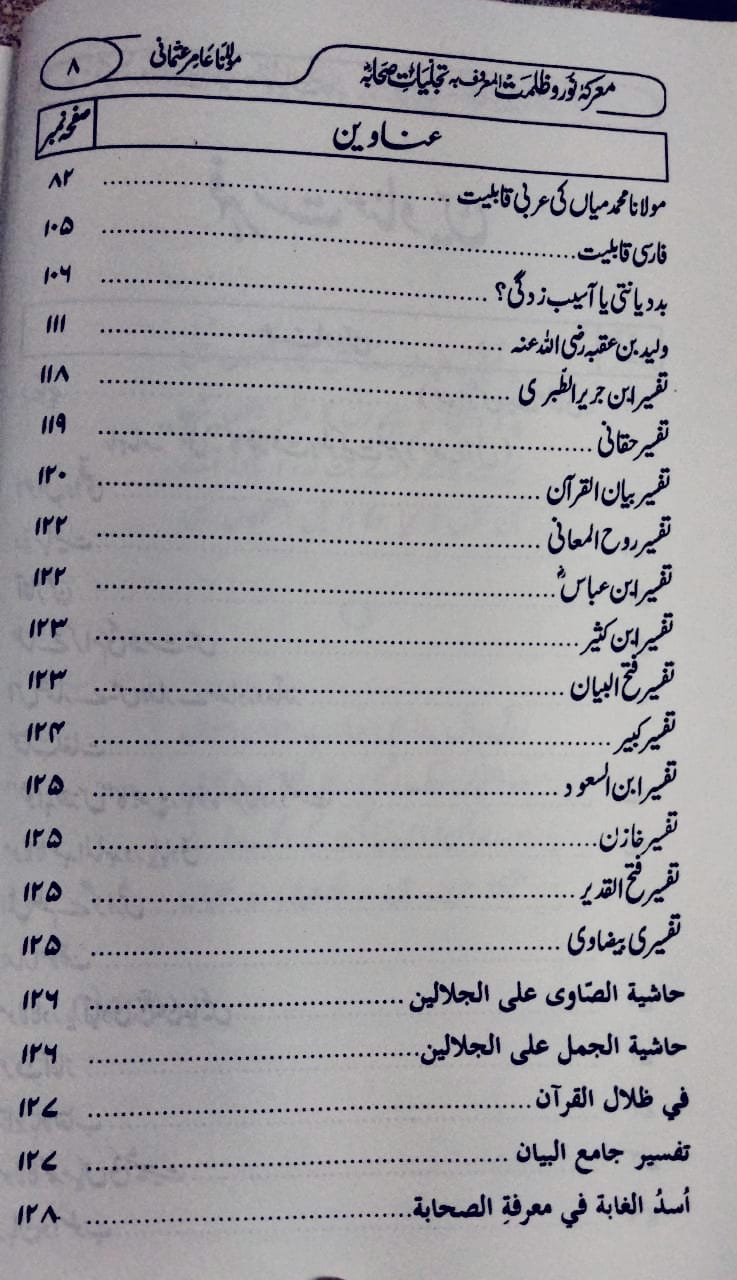 معرکۂ نور و ظلمت المعروف بہ تجلیات صحابہؓ مولانا عامر عثمانی ۸
عناوین صفحہ نمبر
مولانا محمد میاں کی عربی قابلیت ........ ۸۲
فارسی قابلیت ........ ۱۰۵
بددیانتی یا آسیب زدگی؟ ........ ۱۰۶
ولید بن عقبہ رضی اللہ عنہ ........ ۱۱۱
تفسیر ابن جریر الطّبری ........ ۱۱۸
تفسیر حقانی ........ ۱۱۹
تفسیر بیان القرآن ........ ۱۲۰
تفسیر روح المعانی ........ ۱۲۲
تفسیر ابن عباسؓ ........ ۱۲۲
تفسیر ابن کثیر ........ ۱۲۳
تفسیر فتح البیان ........ ۱۲۳
تفسیر کبیر ........ ۱۲۴
تفسیر ابن السعود ........ ۱۲۵
تفسیر خازن ........ ۱۲۵
تفسیر فتح القدیر ........ ۱۲۵
تفسیری بیضاوی ........ ۱۲۵
حاشية الصّاوى على الجلالين ........ ۱۲۶
حاشية الجمل على الجلالين ........ ۱۲۶
في ظلال القرآن ........ ۱۲۷
تفسير جامع البيان ........ ۱۲۷
اُسدُ الغابة في معرفةِ الصحابة ........ ۱۲۸